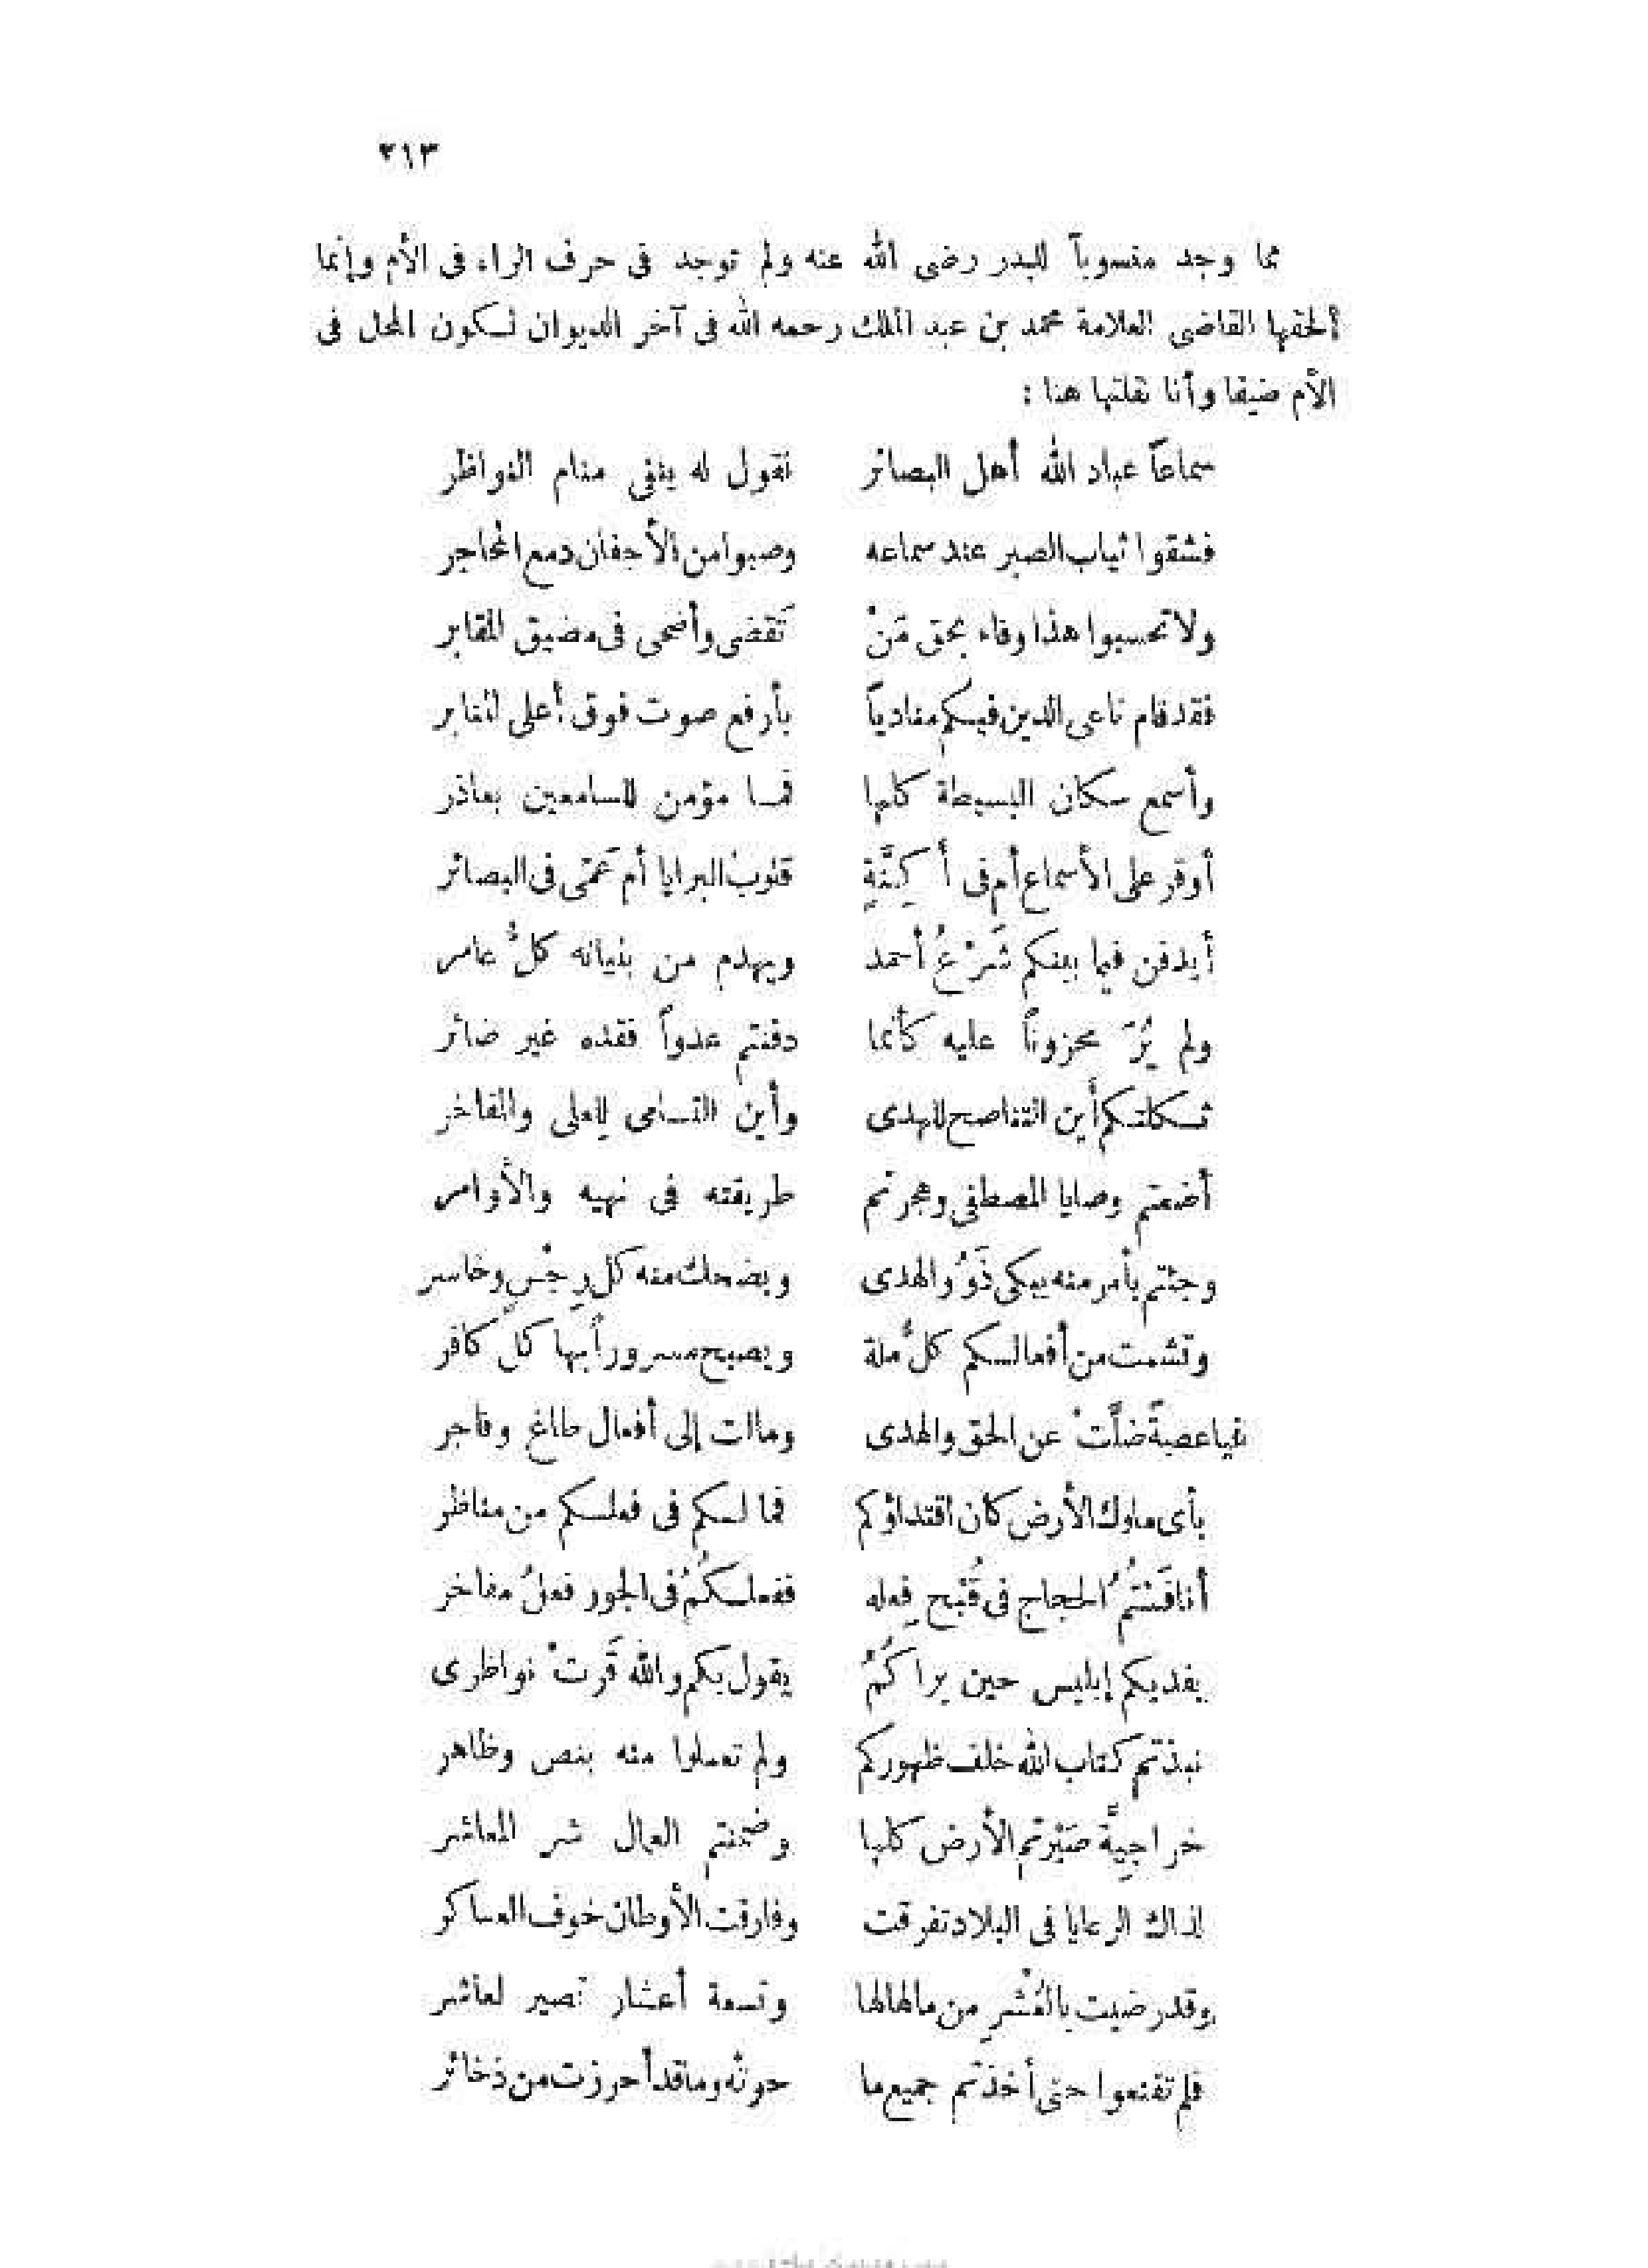 ٢١٣
مما وجد منسوباً للبدر رضى الله عنه ولم توجد فى حرف الراء فى الأم وإنما
ألحقها القاضى العلامة محمد بن عبد الملك رحمه الله فى آخر الديوان لكون المحل فى
الأم ضيقا وأنا نقلتها هنا :
سماعاً عباد الله أهل البصائر نقول له ينفى منام النواظر
فشقوا ثياب الصبر عند سماعه وصبوا من الأجفان دمع المحاجر
ولا تحسبوا هذا وفاء بحق مَنْ تَقضى وأضحى فى مضيق المقابر
فقد قام ناعى الدين فيكم منادياً بأرفع صوت فوق أعلى المنابر
وأسمع سكان البسيطة كلها فما مؤمن للسامعين بعاذر
أوقر على الأسماع أم فى أَكِنَّةٍ قلوبُ البرايا أم عَمًى فى البصائر
أيدفن فيما بينكم شَرْعُ أحمد ويهدم من بنيانه كلُّ عامر
ولم يُرَ محزوناً عليه كأنما دفنتم عدواً فقده غير ضائر
ثكلتكم أين التناصح للهدى وأين التسامى للعلى والمفاخر
أضعتم وصايا المصطفى وهجرتم طريقته فى نهيه والأوامر
وجئتم بأمر منه يبكى ذَوُو الهدى ويضحك منه كل رِجْسٍ وخاسر
وتشمت من أفعالكم كلُّ ملة ويصبح مسروراً بها كلُّ كافر
فيا عصبةً ضلَّتْ عن الحق والهدى ومالت إلى أفعال طاغ وفاجر
بأى ملوك الأرض كان اقتداؤكم فما لكم فى فعلكم من مناظر
أنافَسْتُمُ الحجاج فى قُبْح فِعله ففعلكُمُ فى الجور فعلُ مفاخر
يفديكم إبليس حين يراكُمُ يقول بكم والله قَرتْ نواظرى
نبذتم كتاب الله خلف ظهوركم ولم تعملوا منه بنص وظاهر
خراجِيةً صَيَّرتم الأرض كلها وضمنتم العمال شر المعاشر
لذاك الرعايا فى البلاد تفرقت وفارقت الأوطان خوف العساكر
وقد رضيت بالعُشْرِ من مالها لها وتسعة أعشار تصير لعاشر
فلم تقنعوا حتى أخذتم جميع ما حوته وما قد أحرزت من ذخائر